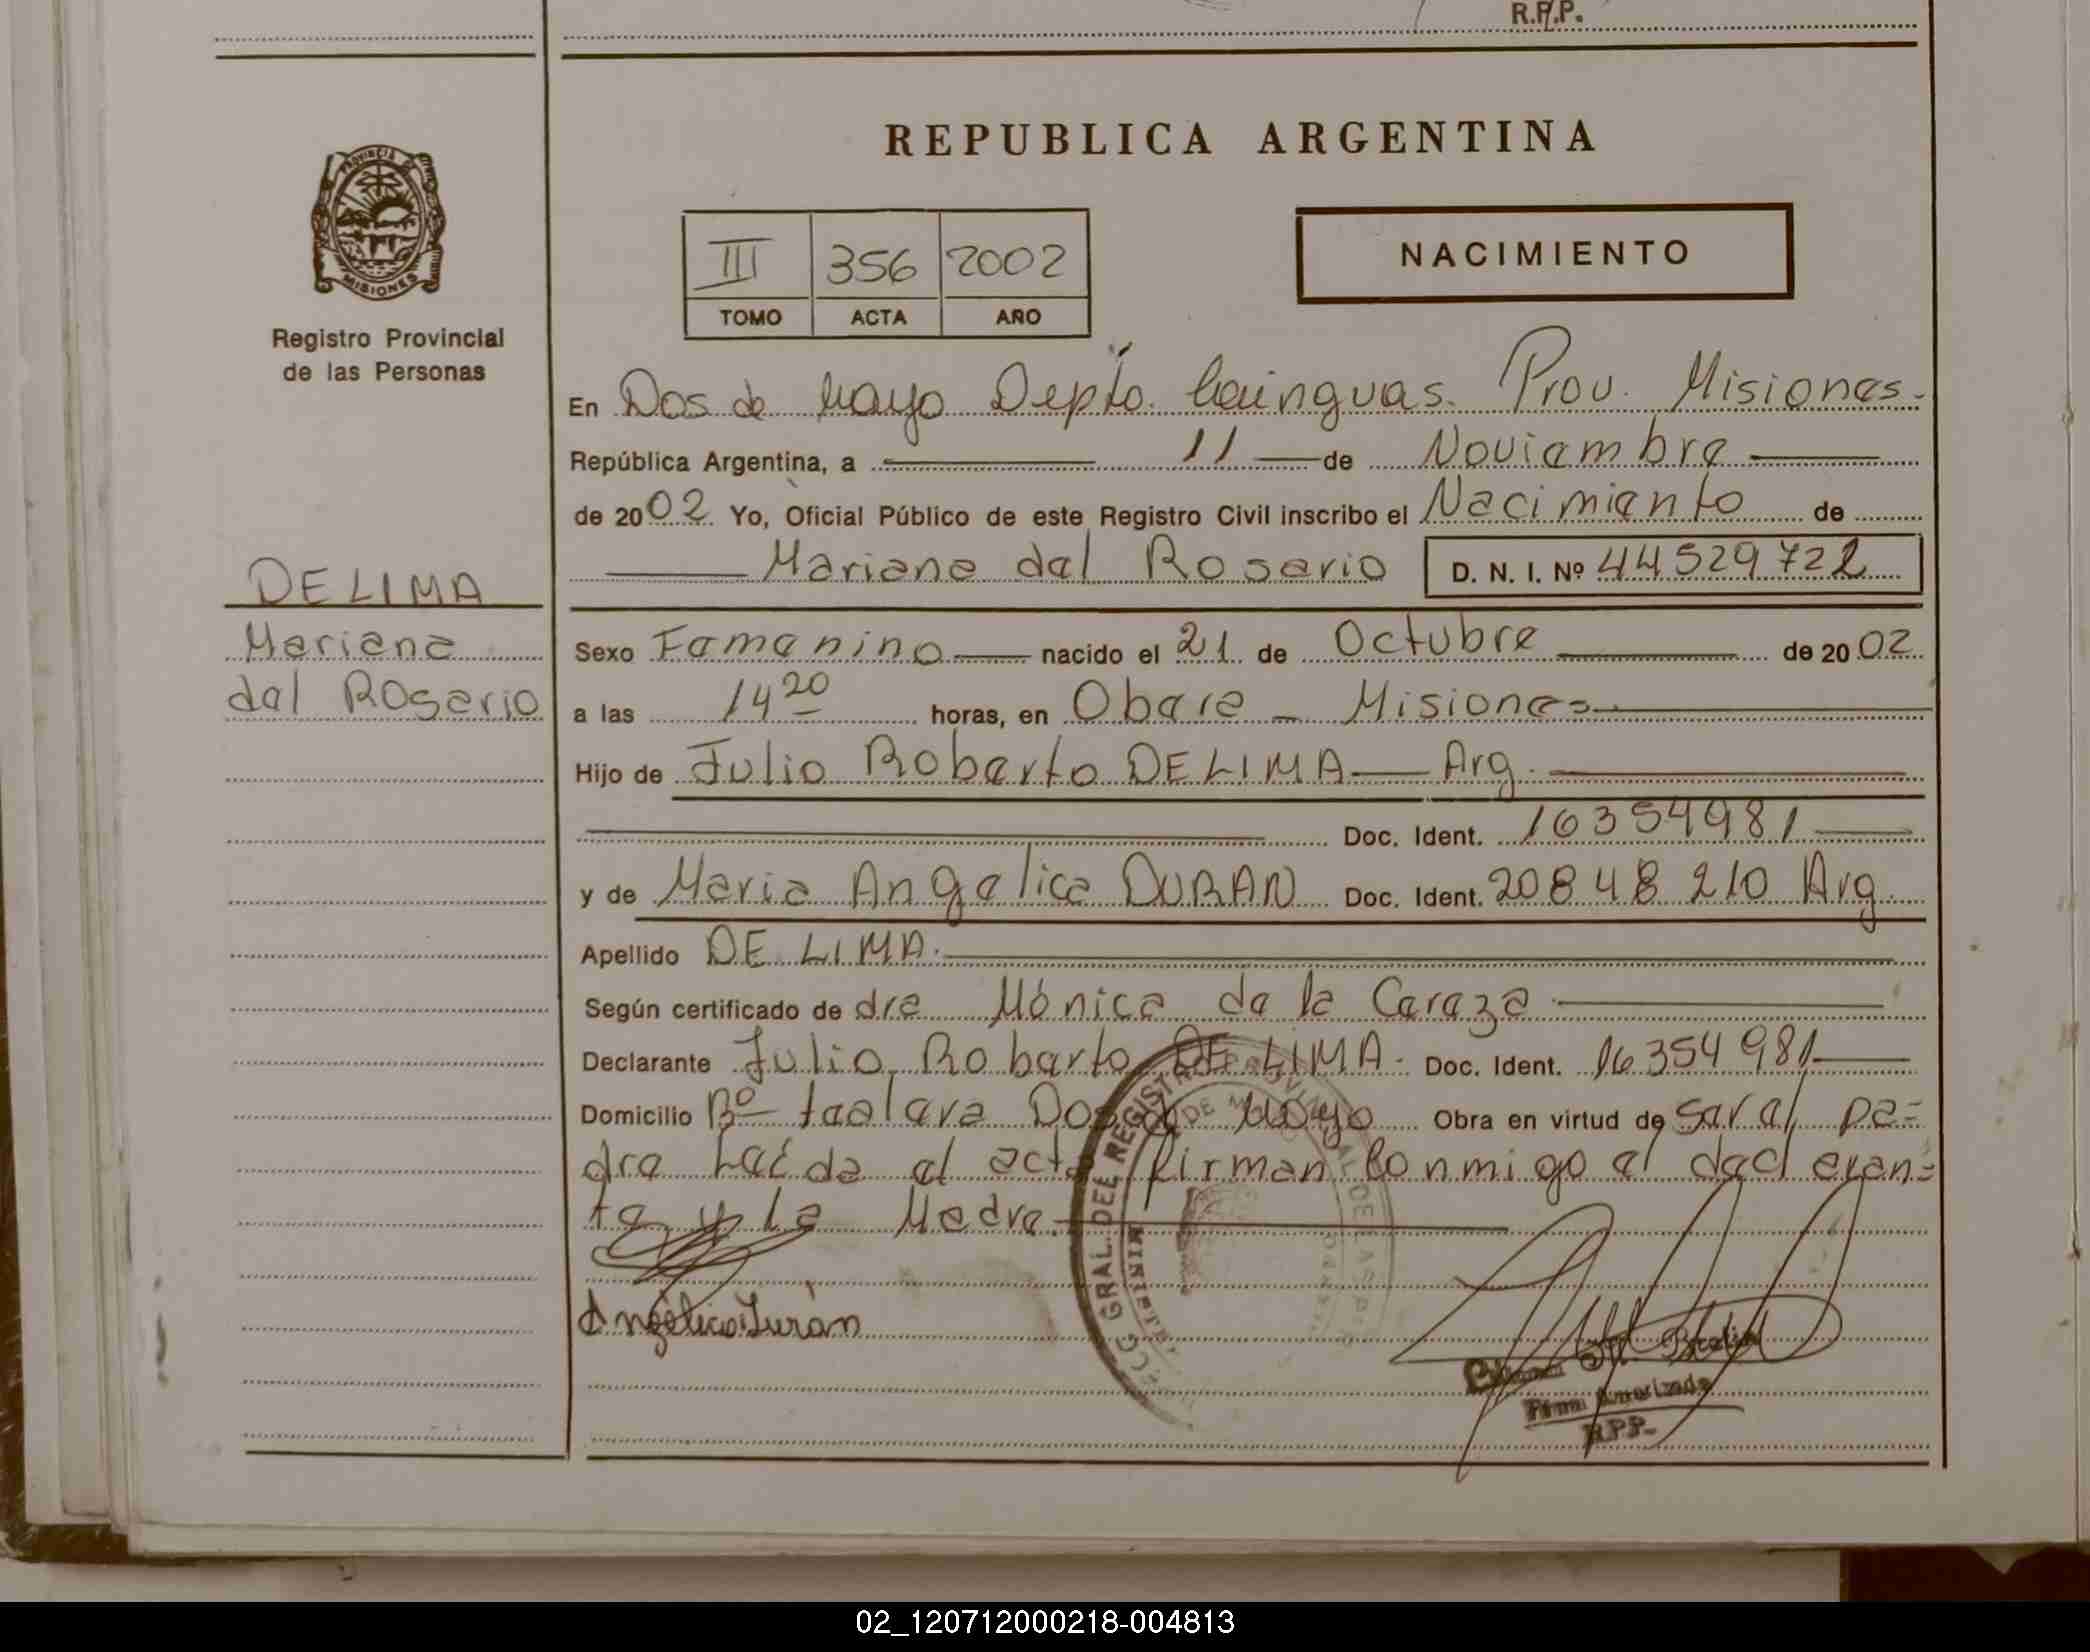 R.P.P.
REPUBLICA ARGENTINA
PROVINCIA DE MISIONES
III 356 2002
TOMO ACTA AÑO
NACIMIENTO
Registro Provincial
de las Personas
En Dos de Mayo Depto. Cainguas. Prov. Misiones.
República Argentina, a 11 de Noviembre
de 2002. Yo, Oficial Público de este Registro Civil inscribo el Nacimiento de
Mariana del Rosario D. N. I. Nº 44529722
DE LIMA
Mariana
del Rosario
Sexo Femenino nacido el 21 de Octubre de 2002
a las 14 20 horas, en Obera - Misiones
Hijo de Julio Roberto DE LIMA Arg.
Doc. Ident. 16354981
y de Maria Angelica DURAN Doc. Ident. 20848210 Arg.
Apellido DE LIMA.
Según certificado de dra Mónica de la Caraza
Declarante Julio Roberto DE LIMA. Doc. Ident. 16354981
Domicilio Bº Dos de Mayo Obra en virtud de ser el pa=
dre Leída el acta firman Conmigo el declaran=
te y la Madre.
Angélica Duran
GRAL. DEL REGISTRO PROVINCIAL DE LAS
Firma Autorizada
R.P.P.
02_120712000218-004813